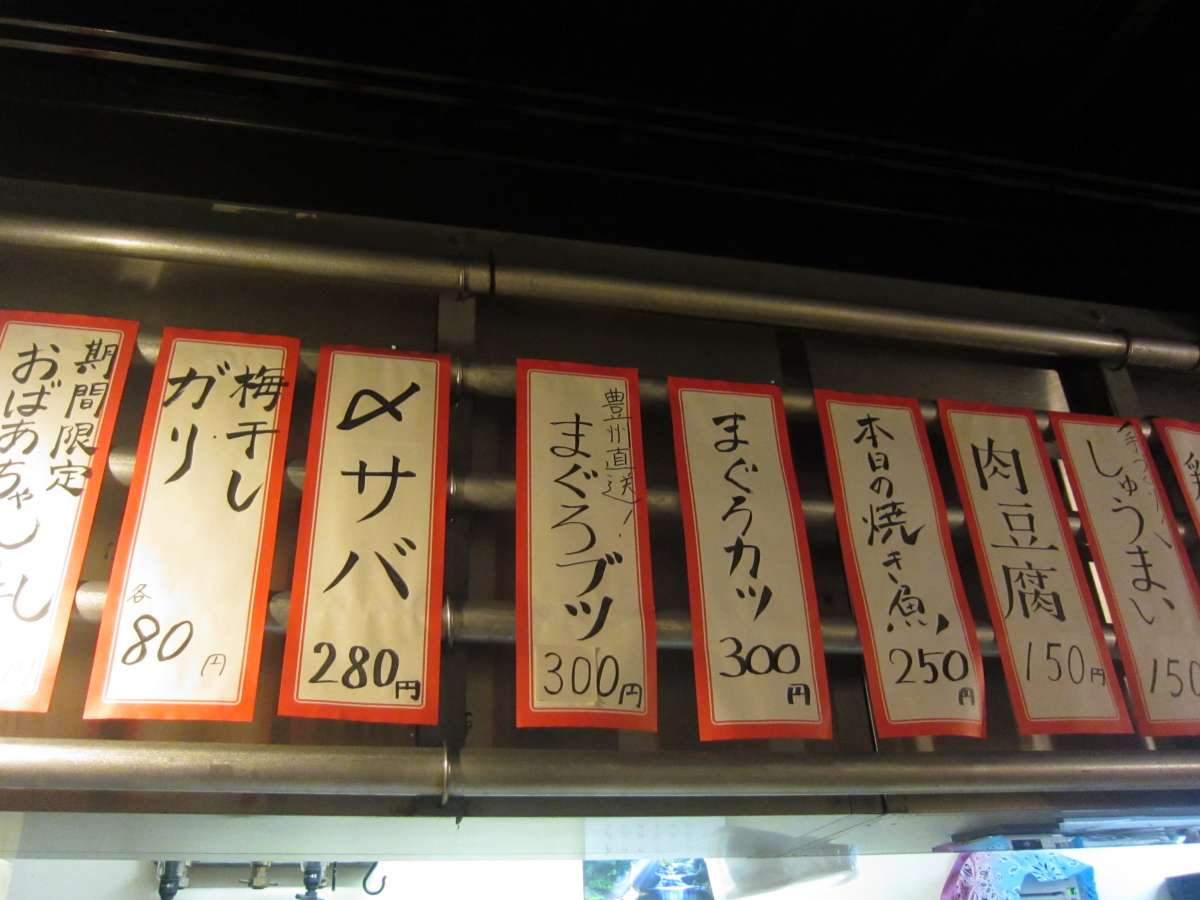 手づくり
しゅうまい
150
肉豆腐
150円
本日の焼き魚
250円
まぐろカツ
300円
豊州直送!
まぐろブツ
300円
〆サバ
280円
梅干し
ガリ
各
80円
期間限定
おばあちゃん